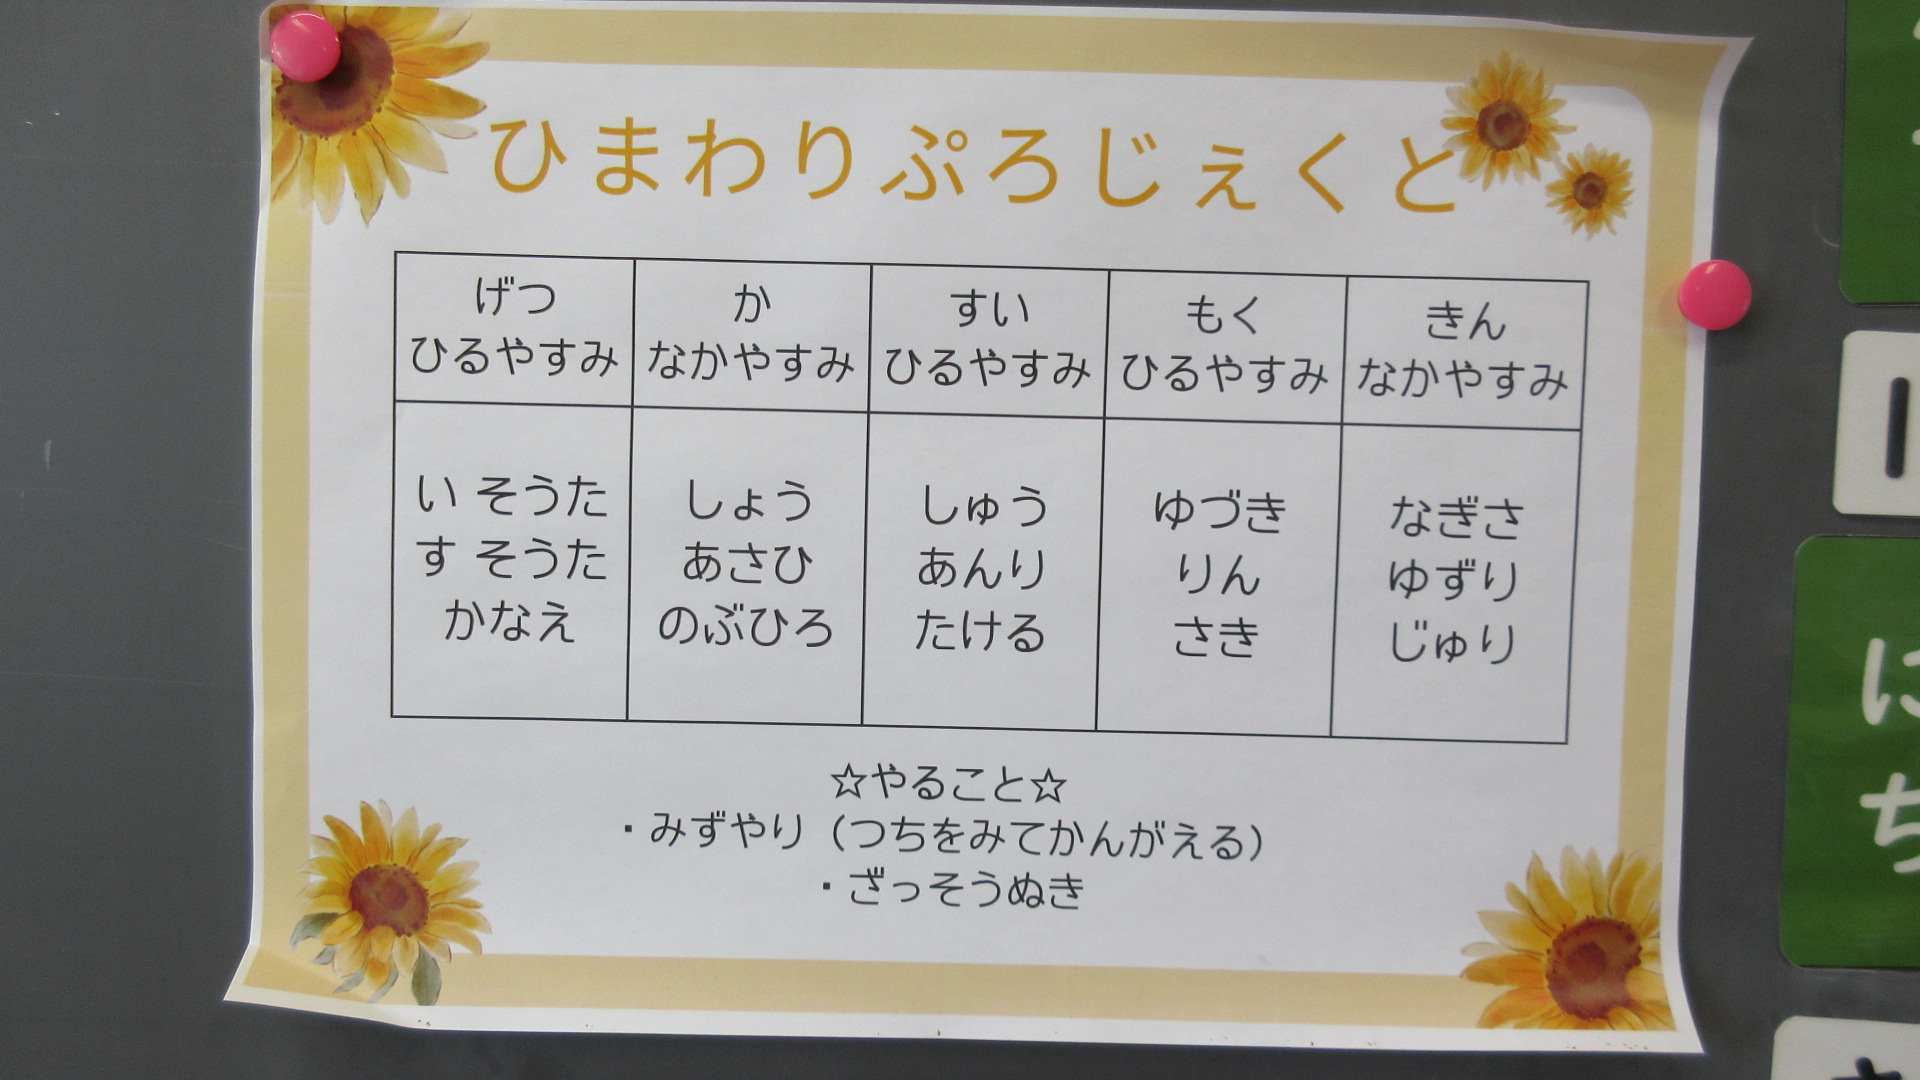 ひまわりぷろじぇくと
げつ か すい もく きん
ひるやすみ なかやすみ ひるやすみ ひるやすみ なかやすみ
い そうた しょう しゅう ゆづき なぎさ
す そうた あさひ あんり りん ゆずり
かなえ のぶひろ たける さき じゅり
☆やること☆
・みずやり（つちをみてかんがえる）
・ざっそうぬき
に
ち